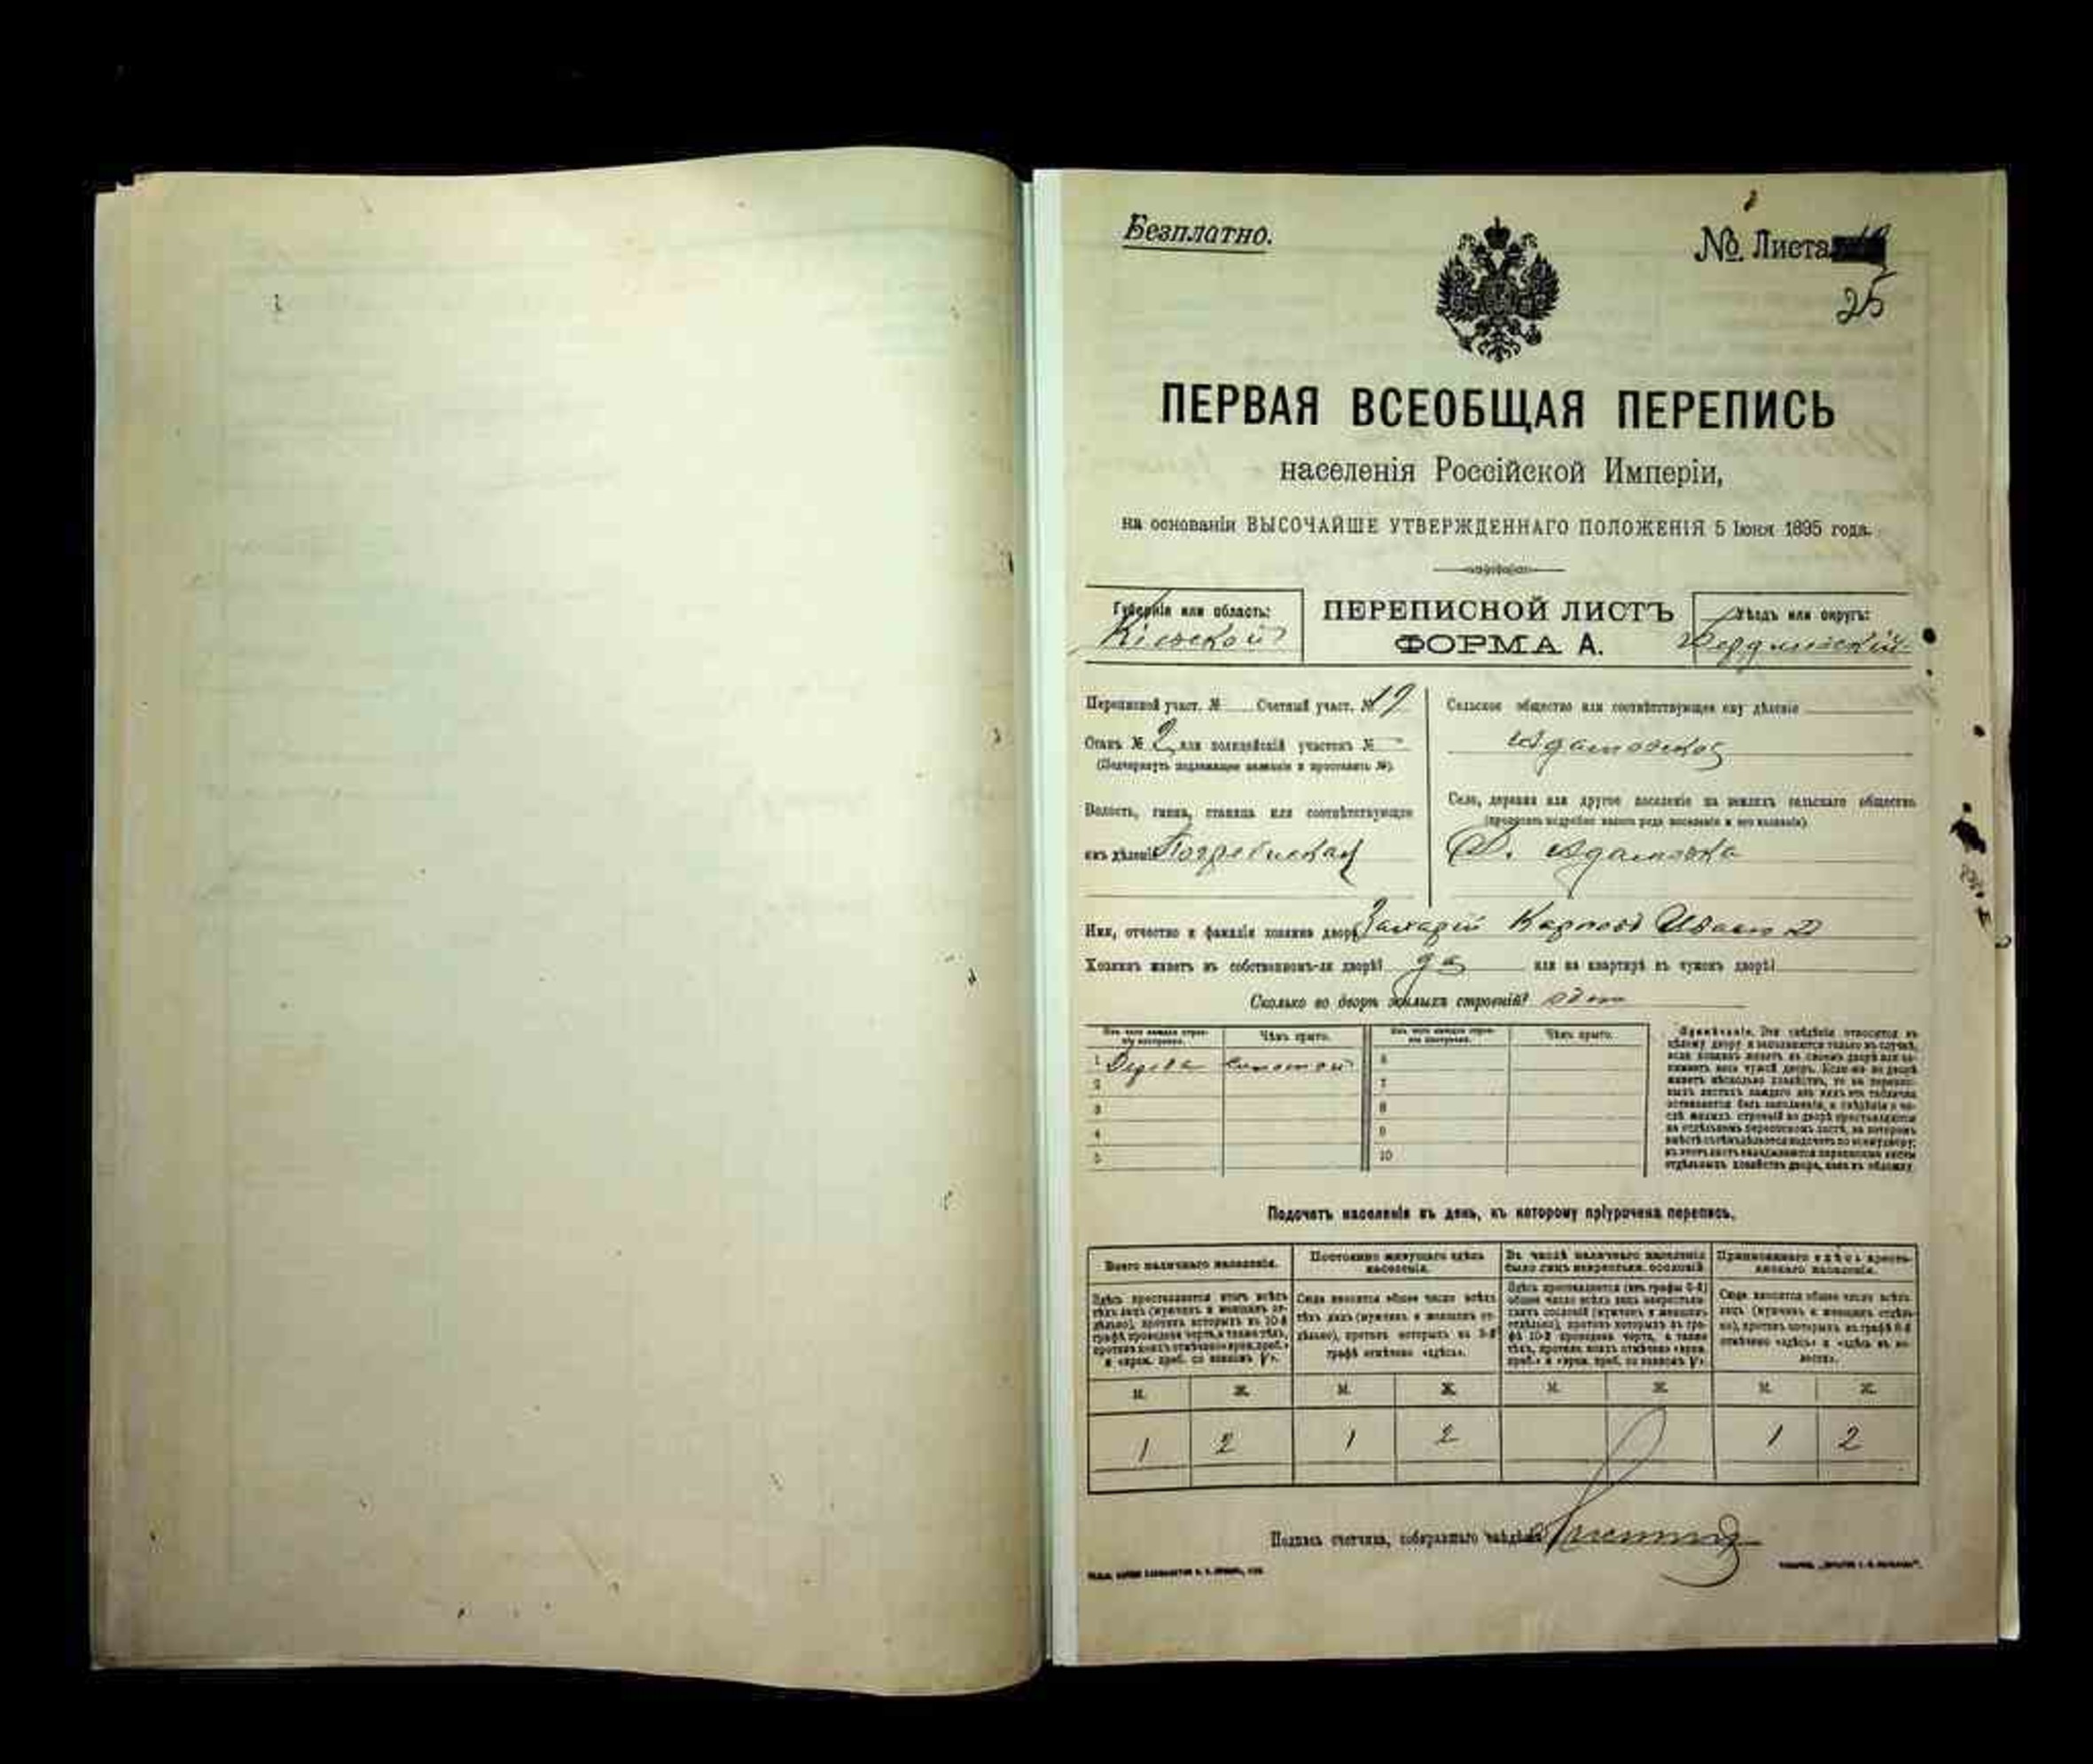 Безплатно.
№ Листа
25
ПЕРВАЯ ВСЕОБЩАЯ ПЕРЕПИСЬ
населенія Россійской Имперіи,
на основаніи ВЫСОЧАЙШЕ УТВЕРЖДЕННАГО ПОЛОЖЕНІЯ 5 Іюня 1895 года.
Губернія или область:
Кіевской
ПЕРЕПИСНОЙ ЛИСТЪ
ФОРМА А.
Уѣздъ или округъ:
Бердичевскій
Переписной участ. № Счетный участ. № 19
Станъ № 2 или полицейскій участокъ № -
(Подчеркнуть подлежащее названіе и проставить №).
Волость, гмина, станица или соотвѣтствующее
имъ дѣленіе Погребиская
Сельское общество или соотвѣтствующее ему дѣленіе
Адамовское
Село, деревня или другое поселеніе на земляхъ сельскаго общества
(прописать подробно какого рода поселеніе и его названіе)
Д. Адамовка
Имя, отчество и фамилія хозяина двора Захарій Карповъ
Хозяинъ живетъ въ собственномъ-ли дворѣ? да или на квартирѣ въ чужомъ дворѣ?
Сколько во дворѣ жилыхъ строеній? одно
Изъ чего каждое строеніе построено.
Чѣмъ крыто.
Изъ чего каждое строеніе построено.
Чѣмъ крыто.
1 Дерева соломой
2
3
4
5
6
7
8
9
10
Примѣчаніе. Эти свѣдѣнія относятся къ
цѣлому двору и заполняются только въ случаѣ,
если хозяинъ живетъ въ своемъ дворѣ или занимаетъ
весь чужой дворъ. Если-же во дворѣ
живетъ нѣсколько хозяйствъ, то на переписныхъ
листахъ каждаго изъ нихъ эта табличка
оставляется безъ заполненія, а свѣдѣнія о числѣ
жилыхъ строеній во дворѣ проставляются
на отдѣльномъ переписномъ листѣ, на которомъ
вмѣстѣ съ тѣмъ дѣлается подсчетъ по всему двору;
въ этотъ листъ вкладываются переписные листы
отдѣльныхъ хозяйствъ двора, какъ въ обложку.
Подсчетъ населенія въ день, къ которому пріурочена перепись.
Всего наличнаго населенія.
Постоянно живущаго здѣсь
населенія.
Въ числѣ наличнаго населенія
было лицъ некрестьян. сословій.
Приписаннаго здѣсь крестьянскаго
населенія.
Здѣсь проставляется итогъ всѣхъ
тѣхъ лицъ (мужчинъ и женщинъ отдѣльно),
противъ которыхъ въ 10-й
графѣ проведена черта, а также тѣхъ,
противъ коихъ отмѣчено «врем. преб.»
и «врем. преб. со знакомъ V».
Сюда вносится общее число всѣхъ
тѣхъ лицъ (мужчинъ и женщинъ отдѣльно),
противъ которыхъ въ 9-й
графѣ отмѣчено «здѣсь».
Здѣсь проставляется (изъ графы 6-й)
общее число всѣхъ лицъ некрестьянскихъ
сословій (мужчинъ и женщинъ
отдѣльно), противъ которыхъ въ графѣ
10-й проведена черта, а также
тѣхъ, противъ коихъ отмѣчено «врем.
преб.» и «врем. преб. со знакомъ V».
Сюда вносится общее число всѣхъ
лицъ (мужчинъ и женщинъ отдѣльно),
противъ которыхъ въ графѣ 8-й
отмѣчено «здѣсь» и «здѣсь въ волости».
М. Ж. М. Ж. М. Ж. М. Ж.
1 2 1 2 1 2
Подпись счетчика, собиравшаго свѣдѣнія